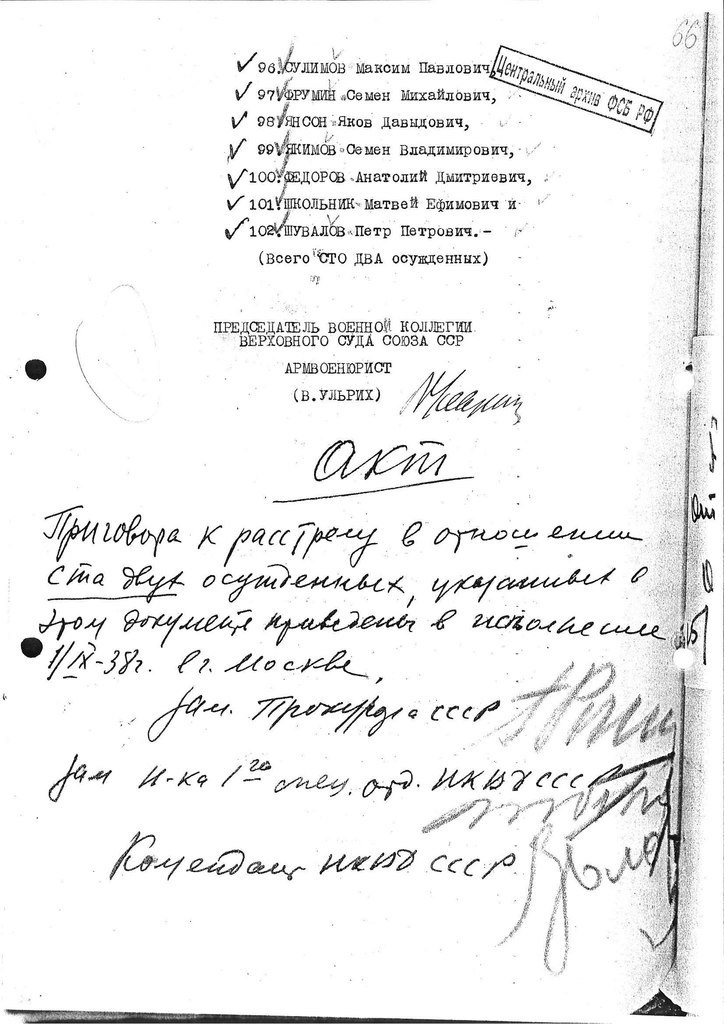 66
✓ 96. СУЛИМОВ Максим Павлович,
Центральный архив ФСБ РФ
✓ 97. ФРУМИН Семен Михайлович,
✓ 98. ЯНСОН Яков Давыдович,
✓ 99. ЯКИМОВ Семен Владимирович,
✓ 100. ФЕДОРОВ Анатолий Дмитриевич,
✓ 101. ШКОЛЬНИК Матвей Ефимович и
✓ 102. ШУВАЛОВ Петр Петрович.-
(Всего СТО ДВА осужденных)
ПРЕДСЕДАТЕЛЬ ВОЕННОЙ КОЛЛЕГИИ
ВЕРХОВНОГО СУДА СОЮЗА ССР
АРМВОЕНЮРИСТ
(В.УЛЬРИХ)
Акт
Приговора к расстрелу в отношении
ста двух осужденных, указанных в
этом документе приведены в исполнение
1/IX-38г. в г. Москве.
Зам. Прокурора СССР
Зам н-ка 1го спец. отд. НКВД СССР
Комендант НКВД СССР